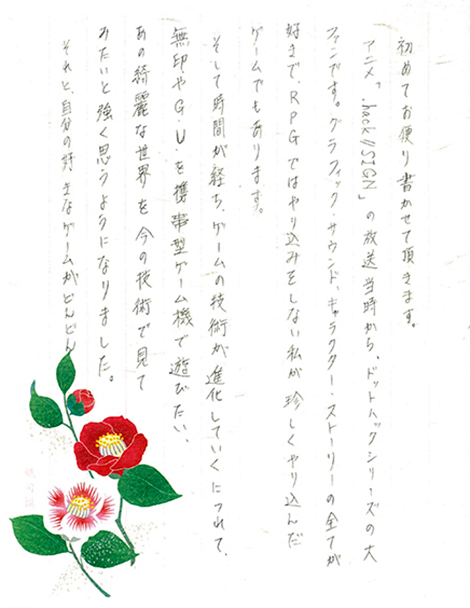 初めてお便り書かせて頂きます。
アニメ「.hack//SIGN」の放送当時から、ドットハックシリーズの大
ファンです。グラフィック・サウンド・キャラクター・ストーリーの全てが
好まで、RPGではやり込みをしない私が珍しくやり込んだ
ゲームでもあります。
そして時間が経ち、ゲームの技術が進化していくにつれて、
無印やG.Uを携帯型ゲーム機で遊びたい、
あの綺麗な世界を今の技術で見て
みたいと強く思うようになりました。
それと、自分の好きなゲームがどんどん